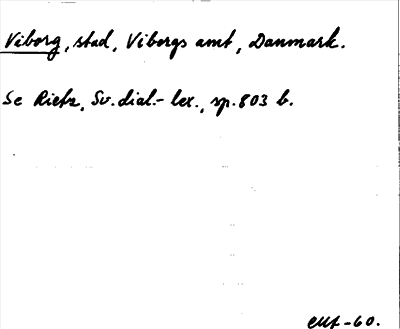 Viborg, stad, Vibergs amt, Danmark.
Se Rietz, Sv. dial.-lex., sp. 803 b.